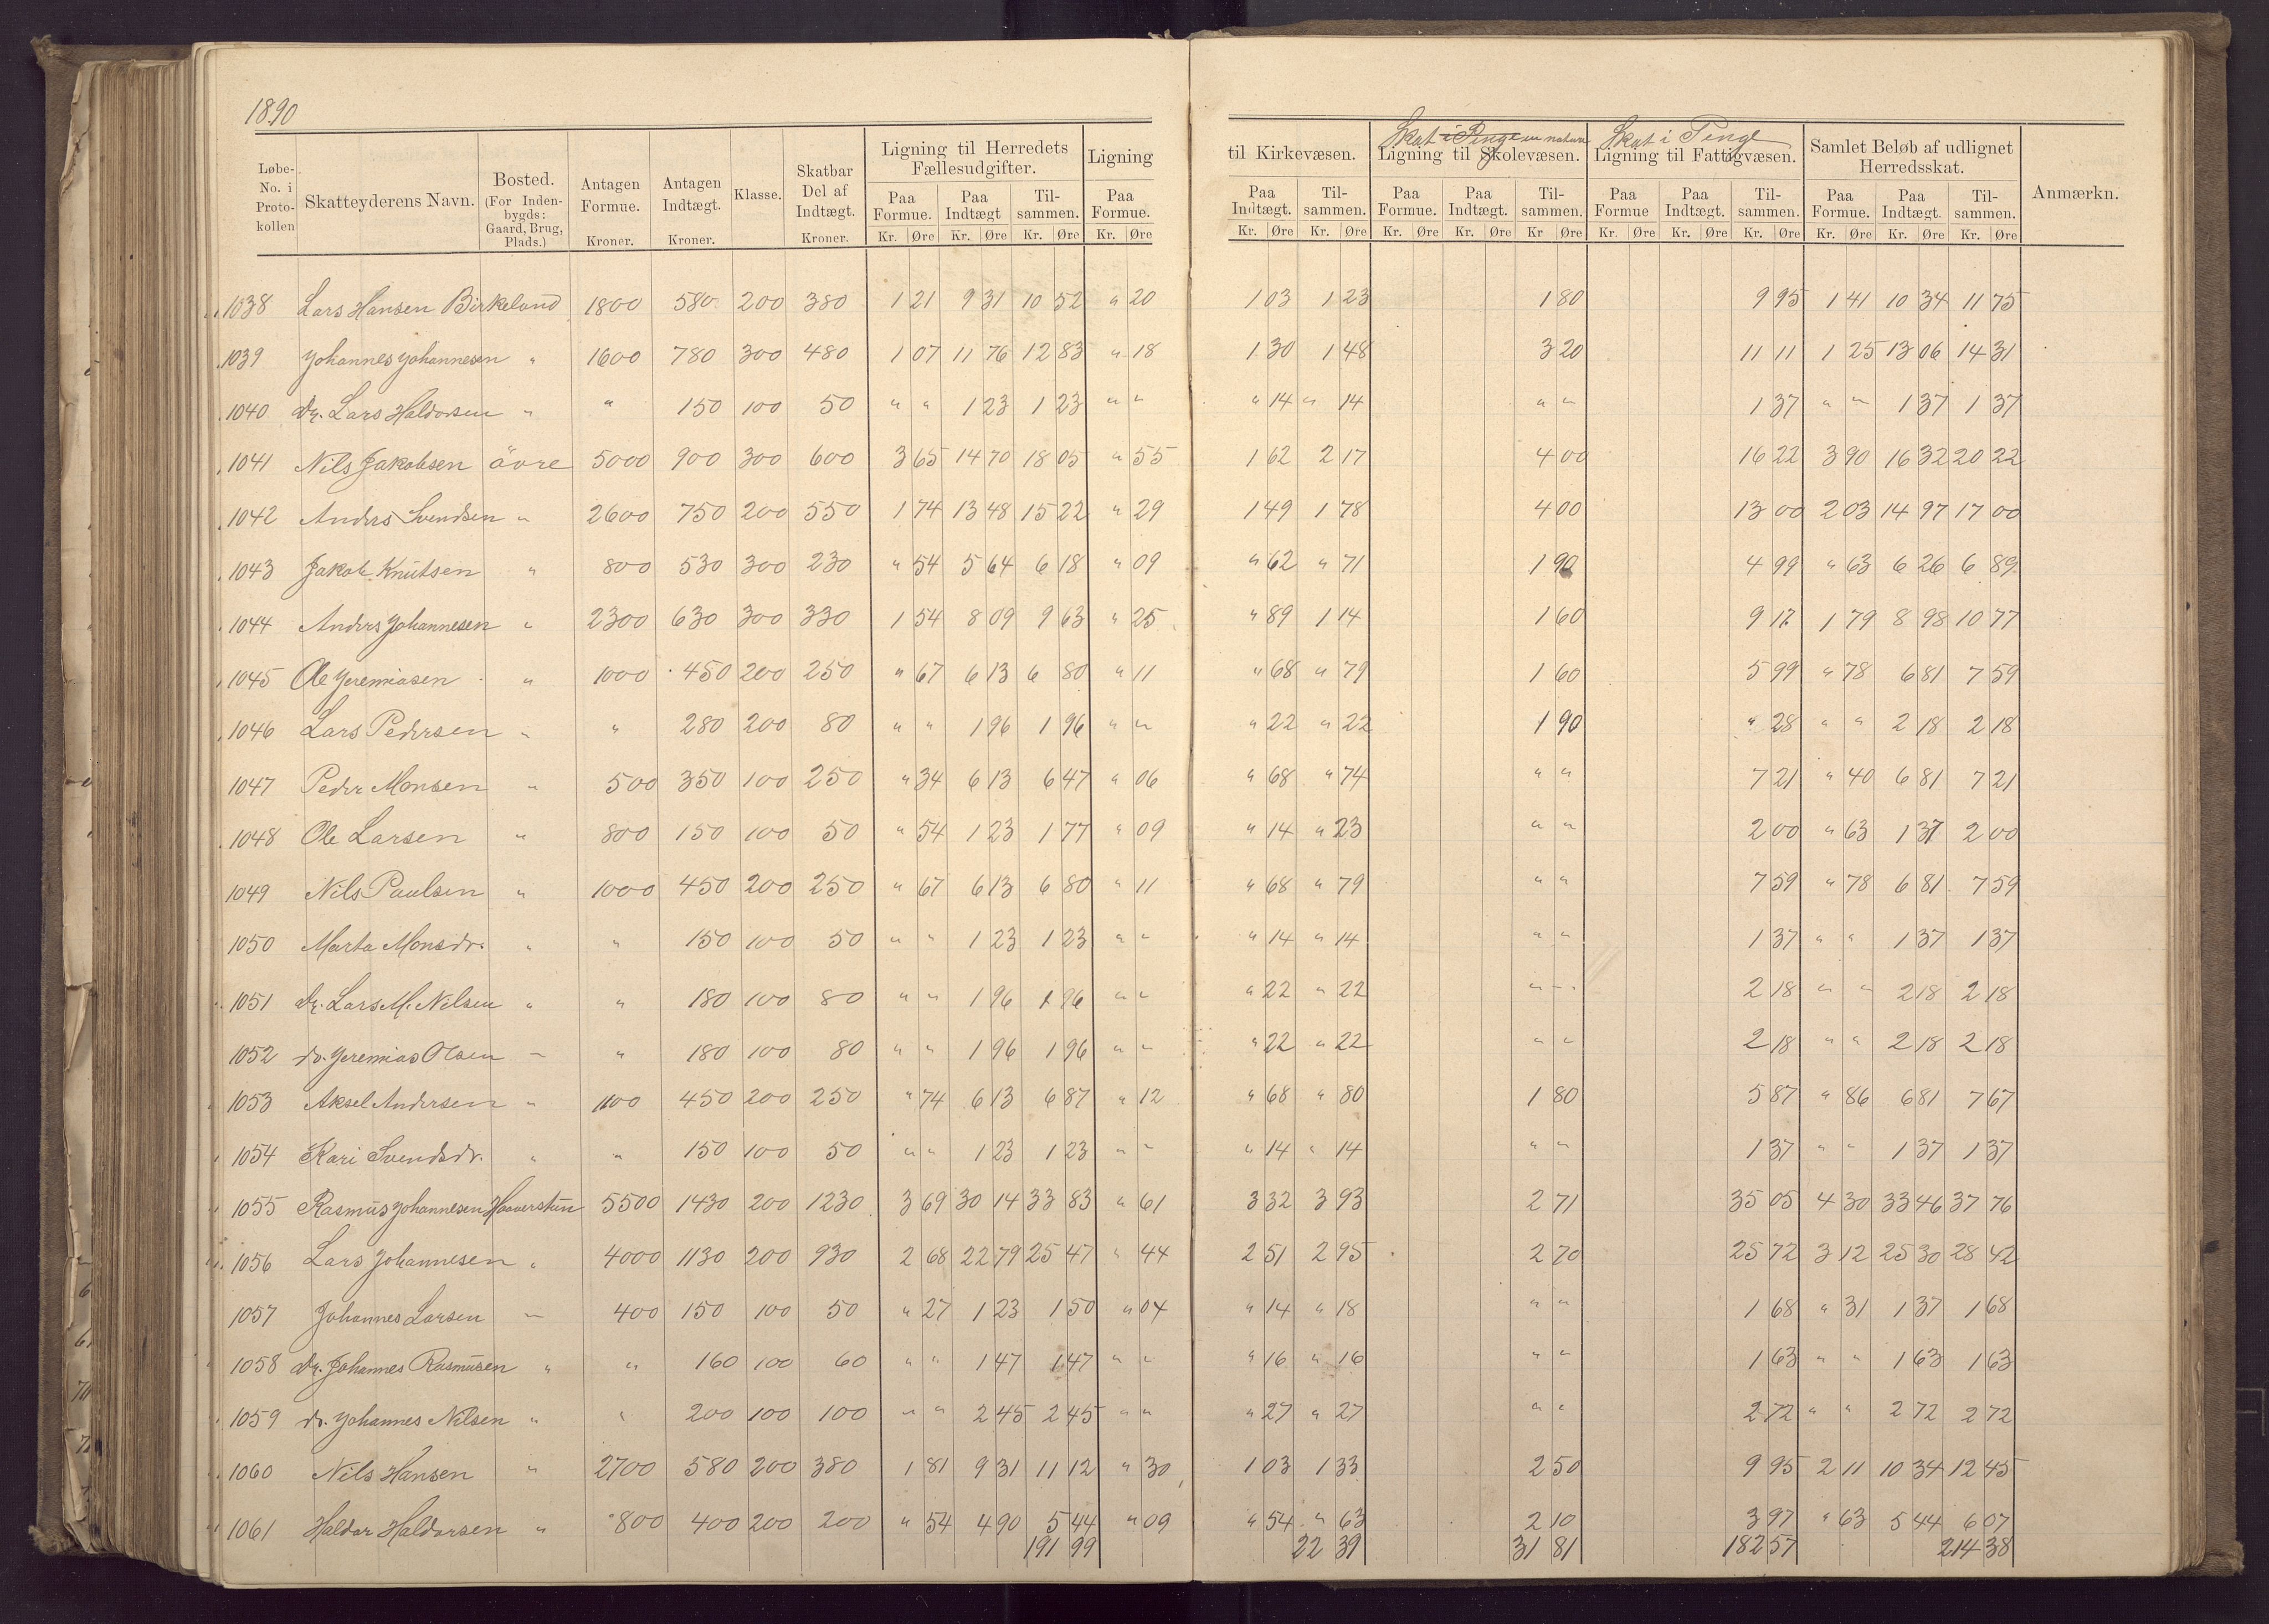 1890
Løbe-No. i Proto-kollen | Skatteyderens Navn. | Bosted. (For Inden-bygds: Gaard, Brug, Plads.) | Antagen Formue. Kroner. | Antagen Indtægt. Kroner. | Klasse. | Skatbar Del af Indtægt. Kroner. | Ligning til Herredets Fællesudgifter. Paa Formue. Kr. Øre | Paa Indtægt Kr. Øre | Til-sammen. Kr. Øre | Ligning til Kirkevæsen. Paa Formue. Kr. Øre | Paa Indtægt. Kr. Øre | Til-sammen. Kr. Øre | Skat i Penge in natura Ligning til Skolevæsen. Paa Formue. Kr. Øre | Paa Indtægt. Kr. Øre | Til-sammen. Kr Øre | Skat i Penge Ligning til Fattigvæsen. Paa Formue Kr. Øre | Paa Indtægt. Kr. Øre | Til-sammen. Kr. Øre | Samlet Beløb af udlignet Herredsskat. Paa Formue. Kr. Øre | Paa Indtægt. Kr. Øre | Til-sammen. Kr. Øre | Anmærkn.
1038 Lars Hansen Birkeland 1800 580 200 380 1 21 9 31 10 52 " 20 1 03 1 23 1 80 9 95 1 41 10 34 11 75
1039 Johannes Johannesen " 1600 780 300 480 1 07 11 76 12 83 " 18 1 30 1 48 3 20 11 11 1 25 13 06 14 31
1040 Dr. Lars Haldorsen " " 150 100 50 " " 1 23 1 23 " " " 14 " 14 " " 1 37 " " 1 37 1 37
1041 Nils Jakobsen övre 5000 900 300 600 3 65 14 70 18 05 " 55 1 62 2 17 4 00 16 22 3 90 16 32 20 22
1042 Anders Svendsen " 2600 750 200 550 1 74 13 48 15 22 " 29 1 49 1 78 4 00 13 00 2 03 14 97 17 00
1043 Jakob Knutsen " 800 530 300 230 " 54 5 64 6 18 " 09 " 62 " 71 1 90 4 99 " 63 6 26 6 89
1044 Anders Johannesen " 2300 630 300 330 1 54 8 09 9 63 " 25 " 89 1 14 1 60 9 17 1 79 8 98 10 77
1045 Ole Jeremiasen " 1000 450 200 250 " 67 6 13 6 80 " 11 " 68 " 79 1 60 5 99 " 78 6 81 7 59
1046 Lars Pedersen " " 280 200 80 " " 1 96 1 96 " " " 22 " 22 1 90 " 28 " " 2 18 2 18
1047 Peder Monsen " 500 350 100 250 " 34 6 13 6 47 " 06 " 68 " 74 " " 7 21 " 40 6 81 7 21
1048 Ole Larsen " 800 150 100 50 " 54 1 23 1 77 " 09 " 14 " 23 " " 2 00 " 63 1 37 2 00
1049 Nils Paulsen " 1000 450 200 250 " 67 6 13 6 80 " 11 " 68 " 79 " " 7 59 " 78 6 81 7 59
1050 Marta Monsdr. " " 150 100 50 " " 1 23 1 23 " " " 14 " 14 " " 1 37 " " 1 37 1 37
1051 Dr. Lars M. Nilsen " " 180 100 80 " " 1 96 1 96 " " " 22 " 22 " " 2 18 " " 2 18 2 18
1052 Dr. Jeremias Olsen " " 180 100 80 " " 1 96 1 96 " " " 22 " 22 " " 2 18 " " 2 18 2 18
1053 Aksel Andersen " 1100 450 200 250 " 74 6 13 6 87 " 12 " 68 " 80 1 80 5 87 " 86 6 81 7 67
1054 Kari Svendsdr. " " 150 100 50 " " 1 23 1 23 " " " 14 " 14 " " 1 37 " " 1 37 1 37
1055 Rasmus Johannesen Haaverstun 5500 1430 200 1230 3 69 30 14 33 83 " 61 3 32 3 93 2 71 35 05 4 30 33 46 37 76
1056 Lars Johannesen " 4000 1130 200 930 2 68 22 79 25 47 " 44 2 51 2 95 2 70 25 72 3 12 25 30 28 42
1057 Johannes Larsen " 400 150 100 50 " 27 1 23 1 50 " 04 " 14 " 18 " " 1 68 " 31 1 37 1 68
1058 Dr. Johannes Rasmusen " " 160 100 60 " " 1 47 1 47 " " " 16 " 16 " " 1 63 " " 1 63 1 63
1059 Dr. Johannes Nilsen " " 200 100 100 " " 2 45 2 45 " " " 27 " 27 " " 2 72 " " 2 72 2 72
1060 Nils Hansen " 2700 580 200 380 1 81 9 31 11 12 " 30 1 03 1 33 2 50 9 95 2 11 10 34 12 45
1061 Haldor Haldorsen " 800 400 200 200 " 54 4 90 5 44 " 09 " 54 " 63 2 10 3 97 " 63 5 44 6 07
191 99 22 39 31 81 182 57 214 38